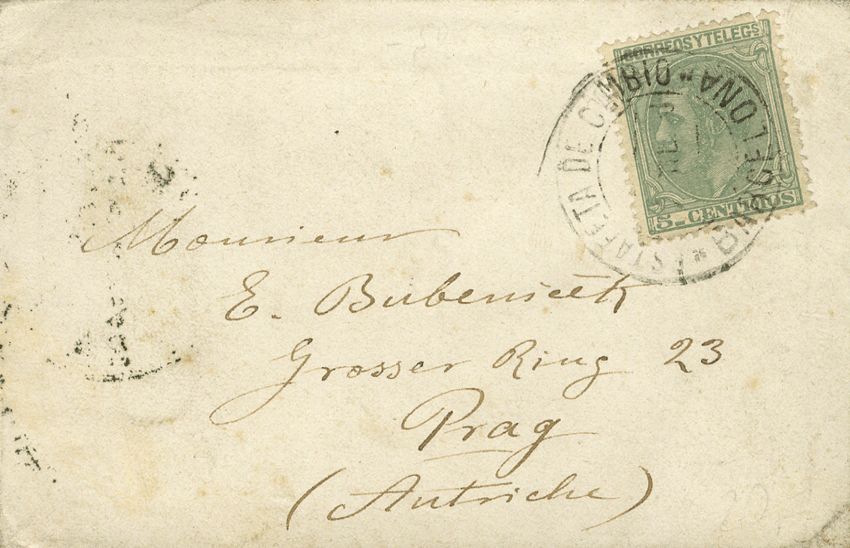 CORREOS Y TELEGS
5 - CENTIMOS
ESTAFETA DE CAMBIO * BARCELONA *
Monsieur
E. Bubeniček
Grosser Ring 23
Prag
(Autriche)